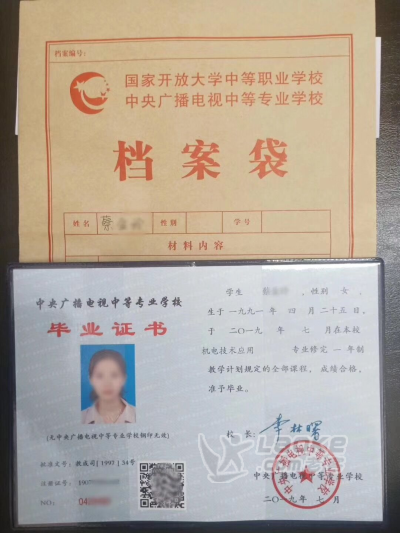 档案编号:
国家开放大学中等职业学校
中央广播电视中等专业学校
档案袋
姓名 蔡 性别 学号
材料内容
中央广播电视中等专业学校
毕业证书
(无中央广播电视中等专业学校钢印无效)
批准文号:教成司[1997]34号
注册证号:1907
NO: 04
学生 ,性别 女,
生于一九九一年 四 月 二十五 日,
于 二〇一九 年 七 月在本校
机电技术应用 专业修完 一 年制
教学计划规定的全部课程,成绩合格,
准予毕业。
校 长: 李林曙
中央广播电视中等专业学校
二〇一九年 七 月